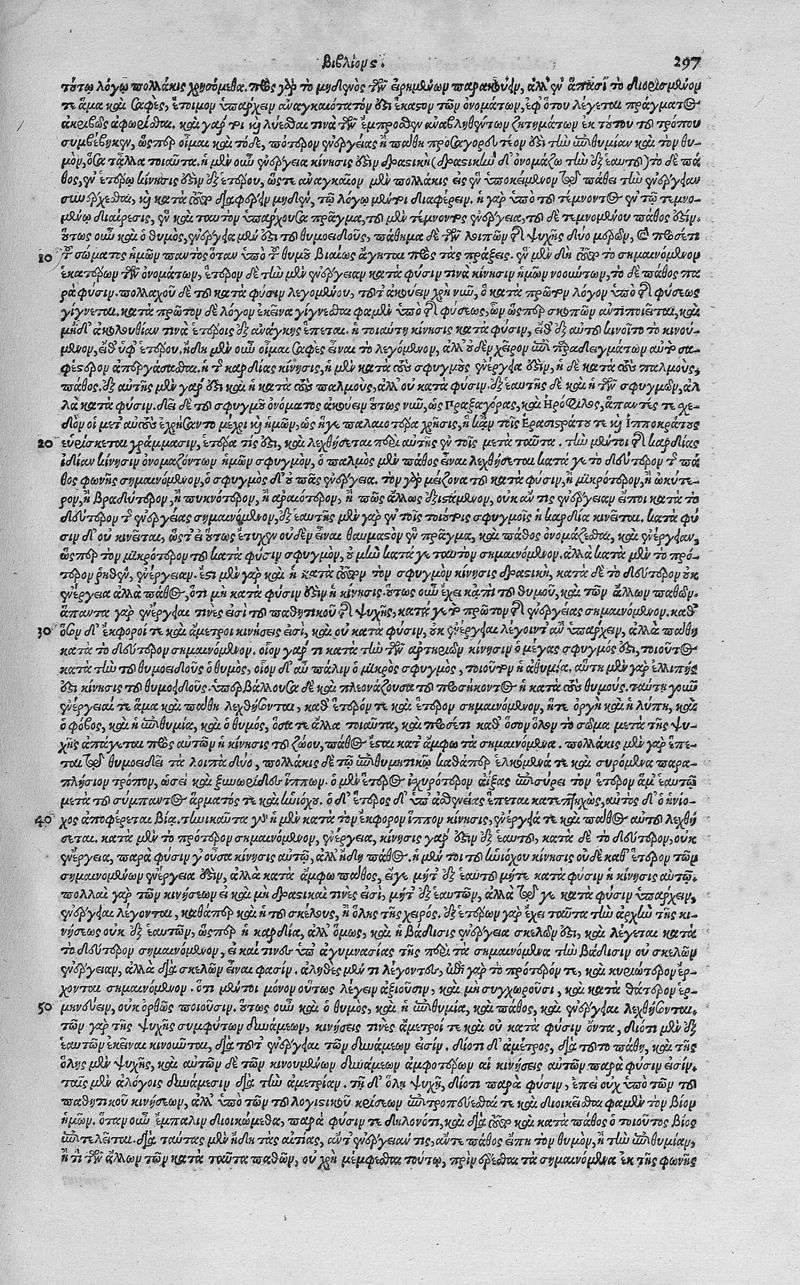 Βιβλίον ς. 297
τούτῳ λόγῳ πολλάκις χρησόμεθα. πρὸς γὰρ τὸ μηδενὸς τῶν εἰρημένων παρακούειν, ἀλλ' ἐν ἅπασι τὸ διωρισμένον
τε ἅμα καὶ σαφὲς, ἕτοιμον ὑπάρχειν ἀναγκαιότατόν ἐστι ἕκαστον τῶν ὀνομάτων, ἐφ' ὅτου λέγεται πράγματος
ἀκριβῶς ἀφωρίσθαι. καὶ γάρ τι καὶ λύεσθαί τινα τῶν ἔμπροσθεν ἀναβληθέντων ζητημάτων ἐκ τούτου τοῦ τρόπου
συμβέβηκεν, ὥσπερ οἶμαι καὶ τόδε, πότερον ἐνεργείας ἢ πάθη προσαγορευτέον ἐστὶ τὴν ἐπιθυμίαν καὶ τὸν θυ-
μὸν, ὅσα τἄλλα τοιαῦτα. ἡ μὲν οὖν ἐνέργεια κίνησίς ἐστιν δραστικὴ (δραστικὴν δ' ὀνομάζω τὴν ἐξ ἑαυτοῦ) τὸ δὲ πά-
θος, ἐν ἑτέρῳ κίνησίς ἐστιν ἐξ ἑτέρου, ὥστε ἀναγκαῖον μὲν πολλάκις εἰς ἓν ὑποκείμενον τῷ πάθει τὴν ἐνέργειαν
συνέρχεσθαι, καὶ κατὰ τοῦτο διαφέρειν μηδὲν, τῷ λόγῳ μέντοι διαφέρειν. ἡ γὰρ ὑπὸ τοῦ τέμνοντος ἐν τῷ τεμνο-
μένῳ διαίρεσις, ἓν καὶ ταυτὸν ὑπάρχουσα πρᾶγμα, τοῦ μὲν τέμνοντος ἐνέργεια, τοῦ δὲ τεμνομένου πάθος ἐστίν.
οὕτως οὖν καὶ ὁ θυμὸς, ἐνέργεια μέν ἐστι τοῦ θυμοειδοῦς, πάθημα δὲ τῶν λοιπῶν τῆς ψυχῆς δύο μερῶν, καὶ προσέτι
10 τοῦ σώματος ἡμῶν παντὸς ὅταν ὑπὸ τοῦ θυμοῦ βιαίως ἄγηται πρὸς τὰς πράξεις. ἓν μὲν δὴ τοῦτο τὸ σημαινόμενον
ἑκατέρων τῶν ὀνομάτων, ἕτερον δὲ τὴν μὲν ἐνέργειαν κατὰ φύσιν τινὰ κίνησιν ἡμῶν νοούντων, τὸ δὲ πάθος πα
ρὰ φύσιν. πολλαχοῦ δὲ τοῦ κατὰ φύσιν λεγομένου, τοῦτ' ἀκούειν χρὴ νῦν, ὃ κατὰ πρῶτον λόγον ὑπὸ τῆς φύσεως
γίγνεται. κατὰ πρῶτον δὲ λόγον ἐκεῖνα γίγνεσθαί φαμεν ὑπὸ τῆς φύσεως, ὧν ὥσπερ σκοπῶν ἀντιποιεῖται, καὶ
μηδ' ἀκολουθίαν τινὰ ἑτέροις ἐξ ἀνάγκης ἕπεται. ἡ τοιαύτη κίνησις κατὰ φύσιν, εἴθ' ἐξ αὑτοῦ κινοῖτο τὸ κινού-
μενον, εἴθ' ὑφ' ἑτέρου. ἤδη μὲν οὖν οἶμαι σαφὲς εἶναι τὸ λεγόμενον, ἀλλ' οὐδὲν χεῖρον ἐπὶ παραδειγμάτων αὐτὸ σα-
φέστερον ἀπεργάσασθαι. ἡ τῆς καρδίας κίνησις, ἡ μὲν κατὰ τοὺς σφυγμοὺς ἐνέργεια ἐστὶν, ἡ δὲ κατὰ τοὺς παλμοὺς,
πάθος. ἐξ αὑτῆς μὲν γάρ ἐστι καὶ ἡ κατὰ τοὺς παλμοὺς, ἀλλ' οὐ κατὰ φύσιν. ἐξ ἑαυτῆς δὲ καὶ ἡ τῶν σφυγμῶν, ἀλ
λὰ κατὰ φύσιν. δεῖ δὲ τοῦ σφυγμοῦ ὀνόματος ἀκούειν οὕτως νῦν, ὡς Πραξαγόρας, καὶ Ἡρόφιλος, ἅπαντές τε σχε-
δὸν οἱ μετ' αὐτοὺς ἐχρήσαντο μέχρι καὶ ἡμῶν, ὡς ἥ γε παλαιοτέρα χρῆσις, ἣ κἀν τοῖς Ἐρασιστράτου τε καὶ Ἱπποκράτους
20 εὑρίσκεται γράμμασιν, ἑτέρα τίς ἐστι, καὶ λεχθήσεται περὶ αὐτῆς ἐν τοῖς μετὰ ταῦτα. τὴν μέντοι τῆς καρδίας
ἰδίαν κίνησιν ὀνομαζόντων ἡμῶν σφυγμὸν, ὁ παλμὸς μὲν πάθος εἶναι λεχθήσεται κατά γε τὸ δεύτερον τῆς πά
θος φωνῆς σημαινόμενον, ὁ σφυγμὸς δ' ὁ πᾶς ἐνέργεια. τὸν γὰρ μείζονα τοῦ κατὰ φύσιν, ἢ μικρότερον, ἢ ὠκύτε-
ρον, ἢ βραδύτερον, ἢ πυκνότερον, ἢ ἀραιότερον, ἤ πως ἄλλως ἐξιστάμενον, οὐκ ἄν τις ἐνέργειαν εἴποι κατὰ τὸ
δεύτερον τῆς ἐνεργείας σημαινόμενον, ἐξ ἑαυτῆς μὲν γὰρ ἐν τοῖς τοιούτοις σφυγμοῖς ἡ καρδία κινεῖται. κατὰ φύ
σιν δ' οὐ κινεῖται, ὥστ' εἰ οὕτως ἔτυχεν οὐδὲν εἶναι θαυμαστὸν ἓν πρᾶγμα, καὶ πάθος ὀνομάζεσθαι, καὶ ἐνέργειαν,
ὥσπερ τὸν μικρότερον τοῦ κατὰ φύσιν σφυγμὸν, οὐ μὴν κατά γε ταυτὸν σημαινόμενον. ἀλλὰ κατὰ μὲν τὸ πρό-
τερον ῥηθὲν, ἐνέργειαν. ἔστι μὲν γὰρ καὶ ἡ κατὰ τοῦτον τὸν σφυγμὸν κίνησις δραστικὴ, κατὰ δὲ τὸ δεύτερον οὐκ
ἐνέργεια ἀλλὰ πάθος, ὅτι μὴ κατὰ φύσιν ἐστὶν ἡ κίνησις. οὕτως οὖν ἔχει κἀπὶ τοῦ θυμοῦ, καὶ τῶν ἄλλων παθῶν.
ἅπαντα γὰρ ἐνέργειαί τινές εἰσι τοῦ παθητικοῦ τῆς ψυχῆς, κατά γε τὸ πρῶτον τῆς ἐνεργείας σημαινόμενον. καθ'
30 ὅσον δ' ἔκφοροί τε καὶ ἄμετροι κινήσεις εἰσὶ, καὶ οὐ κατὰ φύσιν, οὐκ ἐνέργειαι λέγοιντ' ἂν ὑπάρχειν, ἀλλὰ πάθη
κατὰ τὸ δεύτερον σημαινόμενον. οἷον γάρ τι κατὰ τὴν τῶν ἀρτηριῶν κίνησιν ὁ μέγας σφυγμός ἐστι, τοιοῦτος
κατὰ τὴν τοῦ θυμοειδοῦς ὁ θυμὸς, οἷον δ' αὖ πάλιν ὁ μικρὸς σφυγμὸς, τοιοῦτον ἡ ἀθυμία, αὕτη μὲν γὰρ ἐλλιπής
ἐστι κίνησις τοῦ θυμοειδοῦς. ὑπερβάλλουσα δὲ καὶ πλεονάζουσα τοῦ προσήκοντος ἡ κατὰ τοὺς θυμούς. ταύτῃ γοῦν
ἐνέργειαί τε ἅμα καὶ πάθη λεχθήσονται, καθ' ἕτερόν τε καὶ ἕτερον σημαινόμενον, ἥ τε ὀργὴ καὶ ἡ λύπη, καὶ
ὁ φόβος, καὶ ἡ ἐπιθυμία, καὶ ὁ θυμὸς, ὅσα τε ἄλλα τοιαῦτα, καὶ προσέτι καθ' ὅσον ὅλον τὸ σῶμα μετὰ τῆς ψυ-
χῆς ἀπάγεται πρὸς αὐτῶν ἡ κίνησις τοῦ ζώου, πάθος ἔσται κατ' ἄμφω τὰ σημαινόμενα. πολλάκις μὲν γὰρ ἕπε-
ται τῷ θυμοειδεῖ τὰ λοιπὰ δύο, πολλάκις δὲ τῷ ἐπιθυμητικῷ καθάπερ ἑλκόμενά τε καὶ συρόμενα παρα-
πλήσιον τρόπον, ὡσεὶ καὶ ξυνωρίδος ἵππων. ὁ μὲν ἕτερος ἰσχυρότερον ἀίξας ἐπισύρει τὸν ἕτερον ἅμ' ἑαυτῷ
μετὰ τοῦ σύμπαντος ἅρματός τε καὶ ἡνιόχου. ὁ δ' ἕτερος δ' ὑπ' ἀσθενείας ἕπεται κατεπηχὼς, αὐτὸς δ' ὁ ἡνίο-
40 χος ἀποφέρεται βίᾳ. τηνικαῦτα γὰρ ἡ μὲν κατὰ τὸν ἔκφορον ἵππον κίνησις, ἐνέργειά τε καὶ πάθος αὐτοῦ λεχθή
σεται. κατὰ μὲν τὸ πρότερον σημαινόμενον, ἐνέργεια, κίνησις γάρ ἐστιν ἐξ ἑαυτοῦ, κατὰ δὲ τὸ δεύτερον, οὐκ
ἐνέργεια, παρὰ φύσιν γ' οὖσα κίνησις αὐτῷ, ἀλλ' ἤδη πάθος. ἡ μέν τοι τοῦ ἡνιόχου κίνησις οὐδὲ καθ' ἕτερον τῶν
σημαινομένων ἐνέργεια ἐστὶν, ἀλλὰ κατὰ ἄμφω πάθος, εἴγε μήτ' ἐξ ἑαυτοῦ μήτε κατὰ φύσιν ἡ κίνησις αὐτῷ.
πολλαὶ γὰρ τῶν κινήσεων εἰ καὶ μὴ δραστικαί τινές εἰσι, μήτ' ἐξ ἑαυτῶν, ἀλλὰ τῷ γε κατὰ φύσιν ὑπάρχειν,
ἐνέργειαι λέγονται, καθάπερ καὶ ἡ τοῦ σκέλους, ἢ ὅλης τῆς χειρός. ἐξ ἑτέρων γὰρ ἔχει ταῦτα τὴν ἀρχὴν τῆς κι-
νήσεως οὐκ ἐξ ἑαυτῶν, ὥσπερ ἡ καρδία, ἀλλ' ὅμως, καὶ ἡ βάδισις ἐνέργεια σκελῶν ἐστι, καὶ λέγεται κατὰ
τὸ δεύτερον σημαινόμενον, εἰ καί τινες ὑπ' ἀγυμνασίας τῆς περὶ τὰ σημαινόμενα τὴν βάδισιν οὐ σκελῶν
ἐνέργειαν, ἀλλὰ διὰ σκελῶν εἶναι φασίν. ἀληθὲς μέν τι λέγοντες, ἐπὶ γὰρ τὸ πρότερόν τε, καὶ κυριώτερον ἔρ-
χονται σημαινόμενον. ὅτι μέντοι μόνον οὕτως λέγειν ἀξιοῦσιν, καὶ μὴ συγχωροῦσι, καὶ κατὰ θάτερον ἑρ-
50 μηνεύειν, οὐκ ὀρθῶς ποιοῦσιν. οὕτως οὖν καὶ ὁ θυμὸς, καὶ ἡ ἐπιθυμία, καὶ πάθος, καὶ ἐνέργειαι λεχθήσονται.
τῶν γὰρ τῆς ψυχῆς συμφύτων δυνάμεων, κινήσεις τινὲς ἄμετροί τε καὶ οὐ κατὰ φύσιν ὄντα, διότι μὲν ἐξ
ἑαυτῶν ἐκεῖναι κινοῦνται, διὰ τοῦτ' ἐνέργειαι τῶν δυνάμεών εἰσιν. διότι δ' ἀμέτρως, διὰ τοῦτο πάθη, καὶ τῆς
ὅλης μὲν ψυχῆς, καὶ αὐτῶν δὲ τῶν κινουμένων δυνάμεων ἀμφοτέρων αἱ κινήσεις αὐτῶν παρὰ φύσιν εἰσίν.
ταῖς μὲν ἀλόγοις δυνάμεσιν διὰ τὴν ἀμετρίαν. τῇ δ' ὅλῃ ψυχῇ, διότι παρὰ φύσιν, ἐπεὶ οὐχ ὑπὸ τῶν τοῦ
παθητικοῦ κινήσεων, ἀλλ' ὑπὸ τῶν τοῦ λογιστικοῦ κρίσεων ἐπιτροπεύεσθαί τε καὶ διοικεῖσθαί φαμεν τὸν βίον
ἡμῶν. ὅταν οὖν ἔμπαλιν διοικώμεθα, παρὰ φύσιν τε δηλονότι, καὶ διὰ τοῦτο καὶ κατὰ πάθος ὁ τοιοῦτος βίος
ἐπιτελεῖται. διὰ ταύτας μὲν ἤδη τὰς αἰτίας, ἄντ' ἐνέργειάν τις, ἄντε πάθος εἴπῃ τὸν θυμὸν, ἢ τὴν ἐπιθυμίαν,
ἤ τι τῶν ἄλλων τῶν κατὰ ταῦτα παθῶν, οὐ χρὴ μέμφεσθαι τούτῳ, πρὶν ἐρέσθαι τὰ σημαινόμενα ἐκ τῆς φωνῆς